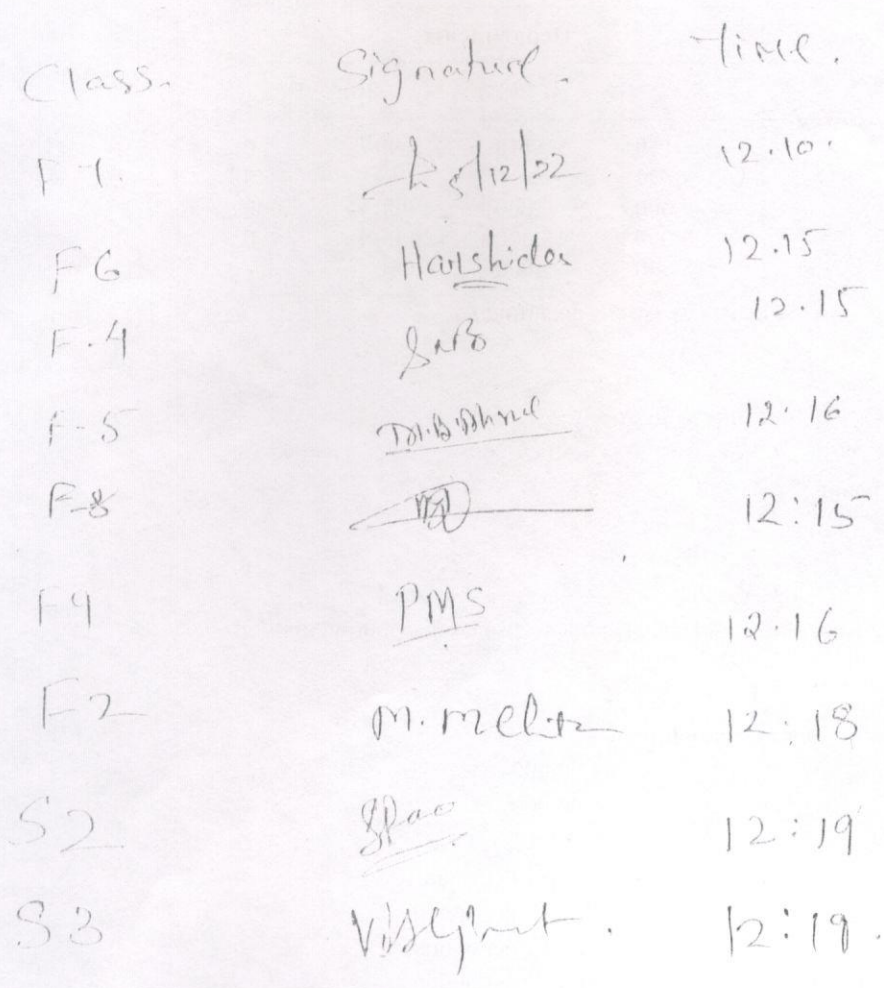 Class. Signature. Time.
F 1. 5/12/22 12.10.
F 6 Harshida 12.15
F.4 SNB 12.15
F-5 12.16
F-8 12:15
F9 PMS 12.16
F2 M. Mehta 12:18
S2 SRao 12:19
S3 12:19.